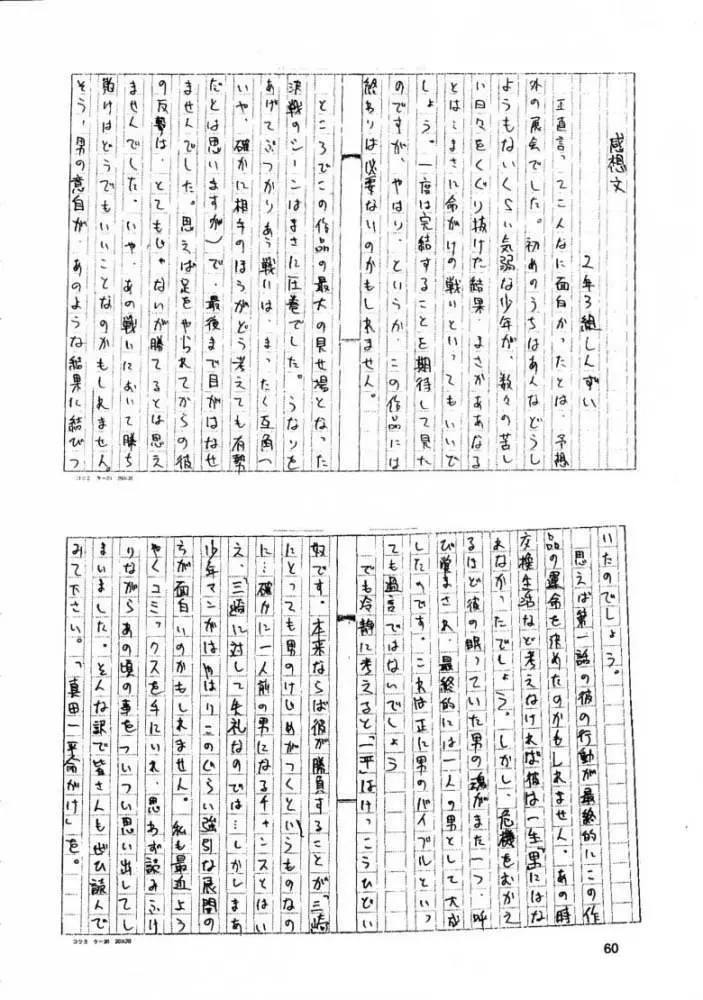 感想文
2年3組しんずい
正直言ってこんなに面白かったとは、予想
外の展会でした。初めのうちはあんなどうし
ようもないくらい気弱な少年が、数々の苦し
い日々をくぐり抜けた結果、まさかああなる
とは…まさに命がけの戦いといってもいいで
しょう。一度は完結することを期待して見た
のですが、やはり、というか、この作品には
終わりは必要ないのかもしれません。
ところでこの作品の最大の見せ場となった
決戦のシーンはまさに圧巻でした。うなりを
あげてぶつかりあう戦いは、まったく互角(
いや、確かに相手のほうがどう考えても有勢
だとは思いますが)で、最後まで目がはなせ
ませんでした。思えば足をやられてからの彼
の反勢は、とてもじゃないが勝てるとは思え
ませんでした。いや、あの戦いにおいて勝ち
負けはどうでもいいことなのかもしれません。
そう、男の意自が、あのような結果に結びつ
コクヨ ケー31 20×20
いたのでしょう。
思えば第一話の彼の行動が最終的にこの作
品の運命を決めたのかもしれません。あの時
交換生活など考えなければ彼は一生"男"にはな
れなかったでしょう。しかし、危機をむかえ
るほど彼の眠っていた男の魂がまた一つ、呼
び覚まされ、最終的には一人の男として大成
したのです。これは正に男のバイブルといっ
ても過言ではないでしょう
でも冷静に考えると「一平」はけっこうひどい
奴です。本来ならば彼が勝負することが「三崎」
にとっても男のけじめがつくというものなの
に…確かに一人前の男になるチャンスとはい
え、「三崎」に対して失礼なのでは…しかしまあ
少年マンガはやはりこのぐらい強引な展開の
ちが面白いのかもしれません。私も最近よう
やくコミックスを手にいれ、思わず読みふけ
りながらあの頃の事をついつい思い出してし
まいました。そんな訳で皆さんも是ひ読んで
みて下さい。「真田一平命がけ」を。
コクヨ ケー31 20×20
60